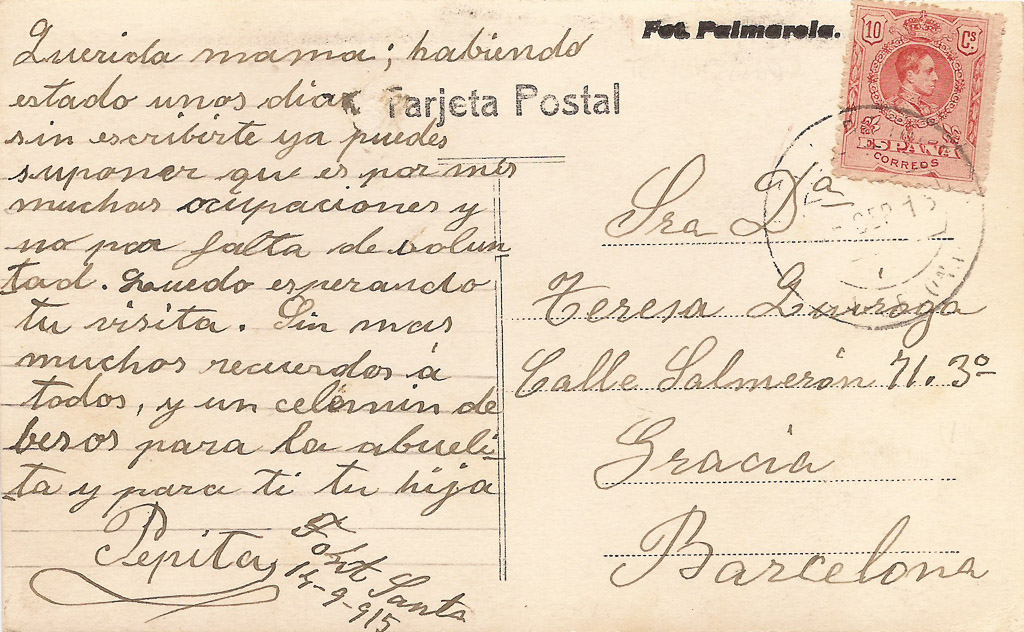 Querida mama; habiendo
estado unos dias
sin escribirte ya puedes
suponer que es por mis
muchas ocupaciones y
no por falta de volun
tad. Quedo esperando
tu visita. Sin mas
muchos recuerdos á
todos, y un celemin de
besos para la abueli
ta y para ti tu hija
Pepita
Font Santa
14-9-915
Fot. Palmarola.
Tarjeta Postal
10 Cs
ESPAÑA
CORREOS
SEP 15
Sra Dña
Teresa Quiroga
Calle Salmerón 71. 3º
Gracia
Barcelona